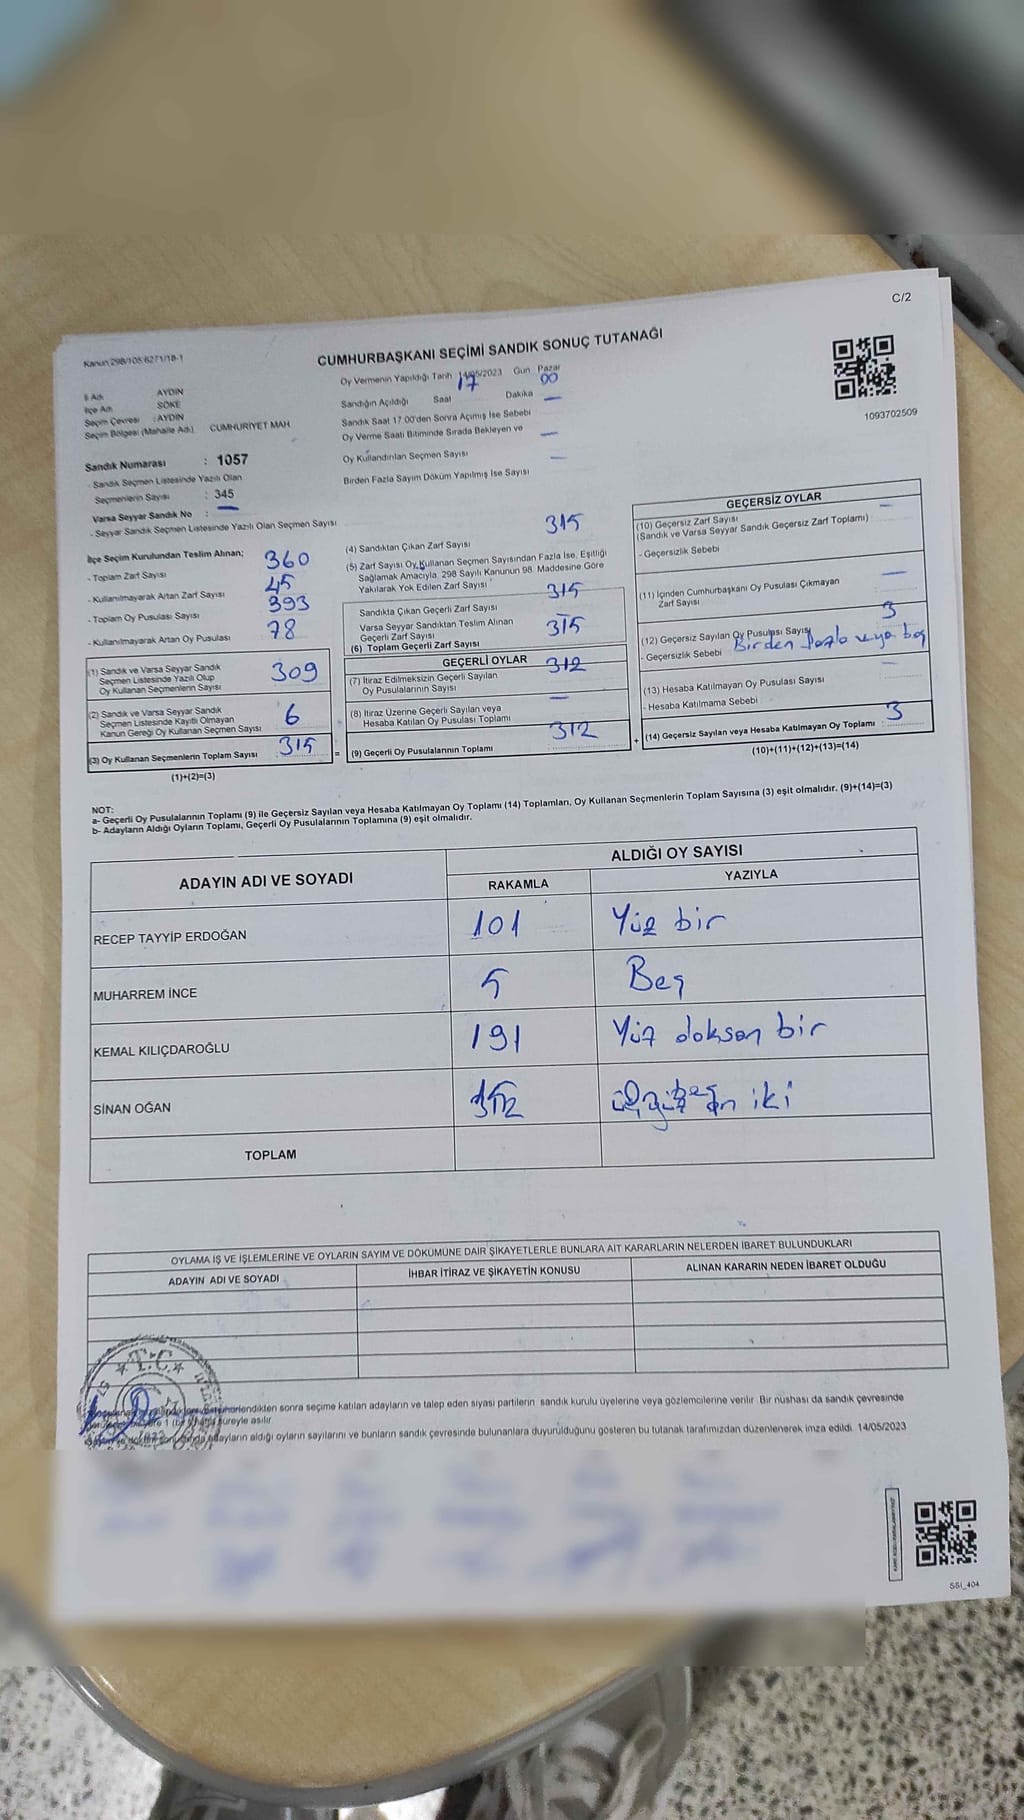 C/2
Kanun:298/105 6271/18-1
CUMHURBAŞKANI SEÇİMİ SANDIK SONUÇ TUTANAĞI
1093702509
İl Adı AYDIN
İlçe Adı SÖKE
Seçim Çevresi : AYDIN
Seçim Bölgesi (Mahalle Adı) CUMHURİYET MAH.
Sandık Numarası : 1057
- Sandık Seçmen Listesinde Yazılı Olan
Seçmenlerin Sayısı : 345
Varsa Seyyar Sandık No : —
- Seyyar Sandık Seçmen Listesinde Yazılı Olan Seçmen Sayısı
Oy Vermenin Yapıldığı Tarih 14/05/2023 Gün Pazar
Sandığın Açıldığı Saat 17 Dakika 00
Sandık Saat 17 00'den Sonra Açılmış İse Sebebi —
Oy Verme Saati Bitiminde Sırada Bekleyen ve
Oy Kullandırılan Seçmen Sayısı —
Birden Fazla Sayım Döküm Yapılmış İse Sayısı —
İlçe Seçim Kurulundan Teslim Alınan;
- Toplam Zarf Sayısı 360
- Kullanılmayarak Artan Zarf Sayısı 45
- Toplam Oy Pusulası Sayısı 393
- Kullanılmayarak Artan Oy Pusulası 78
(1) Sandık ve Varsa Seyyar Sandık
Seçmen Listesinde Yazılı Olup
Oy Kullanan Seçmenlerin Sayısı 309
(2) Sandık ve Varsa Seyyar Sandık
Seçmen Listesinde Kayıtlı Olmayan
Kanun Gereği Oy Kullanan Seçmen Sayısı 6
(3) Oy Kullanan Seçmenlerin Toplam Sayısı 315
(1)+(2)=(3)
=
(4) Sandıktan Çıkan Zarf Sayısı 315
(5) Zarf Sayısı Oy Kullanan Seçmen Sayısından Fazla İse, Eşitliği
Sağlamak Amacıyla, 298 Sayılı Kanunun 98. Maddesine Göre
Yakılarak Yok Edilen Zarf Sayısı
Sandıkta Çıkan Geçerli Zarf Sayısı 315
Varsa Seyyar Sandıktan Teslim Alınan
Geçerli Zarf Sayısı
(6) Toplam Geçerli Zarf Sayısı 315
GEÇERLİ OYLAR
(7) İtiraz Edilmeksizin Geçerli Sayılan
Oy Pusulalarının Sayısı 312
(8) İtiraz Üzerine Geçerli Sayılan veya
Hesaba Katılan Oy Pusulası Toplamı —
(9) Geçerli Oy Pusulalarının Toplamı 312
+
GEÇERSİZ OYLAR
(10) Geçersiz Zarf Sayısı —
(Sandık ve Varsa Seyyar Sandık Geçersiz Zarf Toplamı)
- Geçersizlik Sebebi
(11) İçinden Cumhurbaşkanı Oy Pusulası Çıkmayan
Zarf Sayısı —
(12) Geçersiz Sayılan Oy Pusulası Sayısı 3
- Geçersizlik Sebebi Birden fazla veya boş
(13) Hesaba Katılmayan Oy Pusulası Sayısı —
- Hesaba Katılmama Sebebi
(14) Geçersiz Sayılan veya Hesaba Katılmayan Oy Toplamı : 3
(10)+(11)+(12)+(13)=(14)
NOT:
a- Geçerli Oy Pusulalarının Toplamı (9) ile Geçersiz Sayılan veya Hesaba Katılmayan Oy Toplamı (14) Toplamları, Oy Kullanan Seçmenlerin Toplam Sayısına (3) eşit olmalıdır. (9)+(14)=(3)
b- Adayların Aldığı Oyların Toplamı, Geçerli Oy Pusulalarının Toplamına (9) eşit olmalıdır.
ADAYIN ADI VE SOYADI ALDIĞI OY SAYISI
RAKAMLA YAZIYLA
RECEP TAYYİP ERDOĞAN 101 Yüz bir
MUHARREM İNCE 5 Beş
KEMAL KILIÇDAROĞLU 191 Yüz doksan bir
SİNAN OĞAN
TOPLAM
OYLAMA İŞ VE İŞLEMLERİNE VE OYLARIN SAYIM VE DÖKÜMÜNE DAİR ŞİKAYETLERLE BUNLARA AİT KARARLARIN NELERDEN İBARET BULUNDUKLARI
ADAYIN ADI VE SOYADI İHBAR İTİRAZ VE ŞİKAYETİN KONUSU ALINAN KARARIN NEDEN İBARET OLDUĞU
T.C.
sonra seçime katılan adayların ve talep eden siyasi partilerin sandık kurulu üyelerine veya gözlemcilerine verilir. Bir nüshası da sandık çevresinde
süreyle asılır.
adayların aldığı oyların sayılarını ve bunların sandık çevresinde bulunanlara duyurulduğunu gösteren bu tutanak tarafımızdan düzenlenerek imza edildi. 14/05/2023
SSI_404